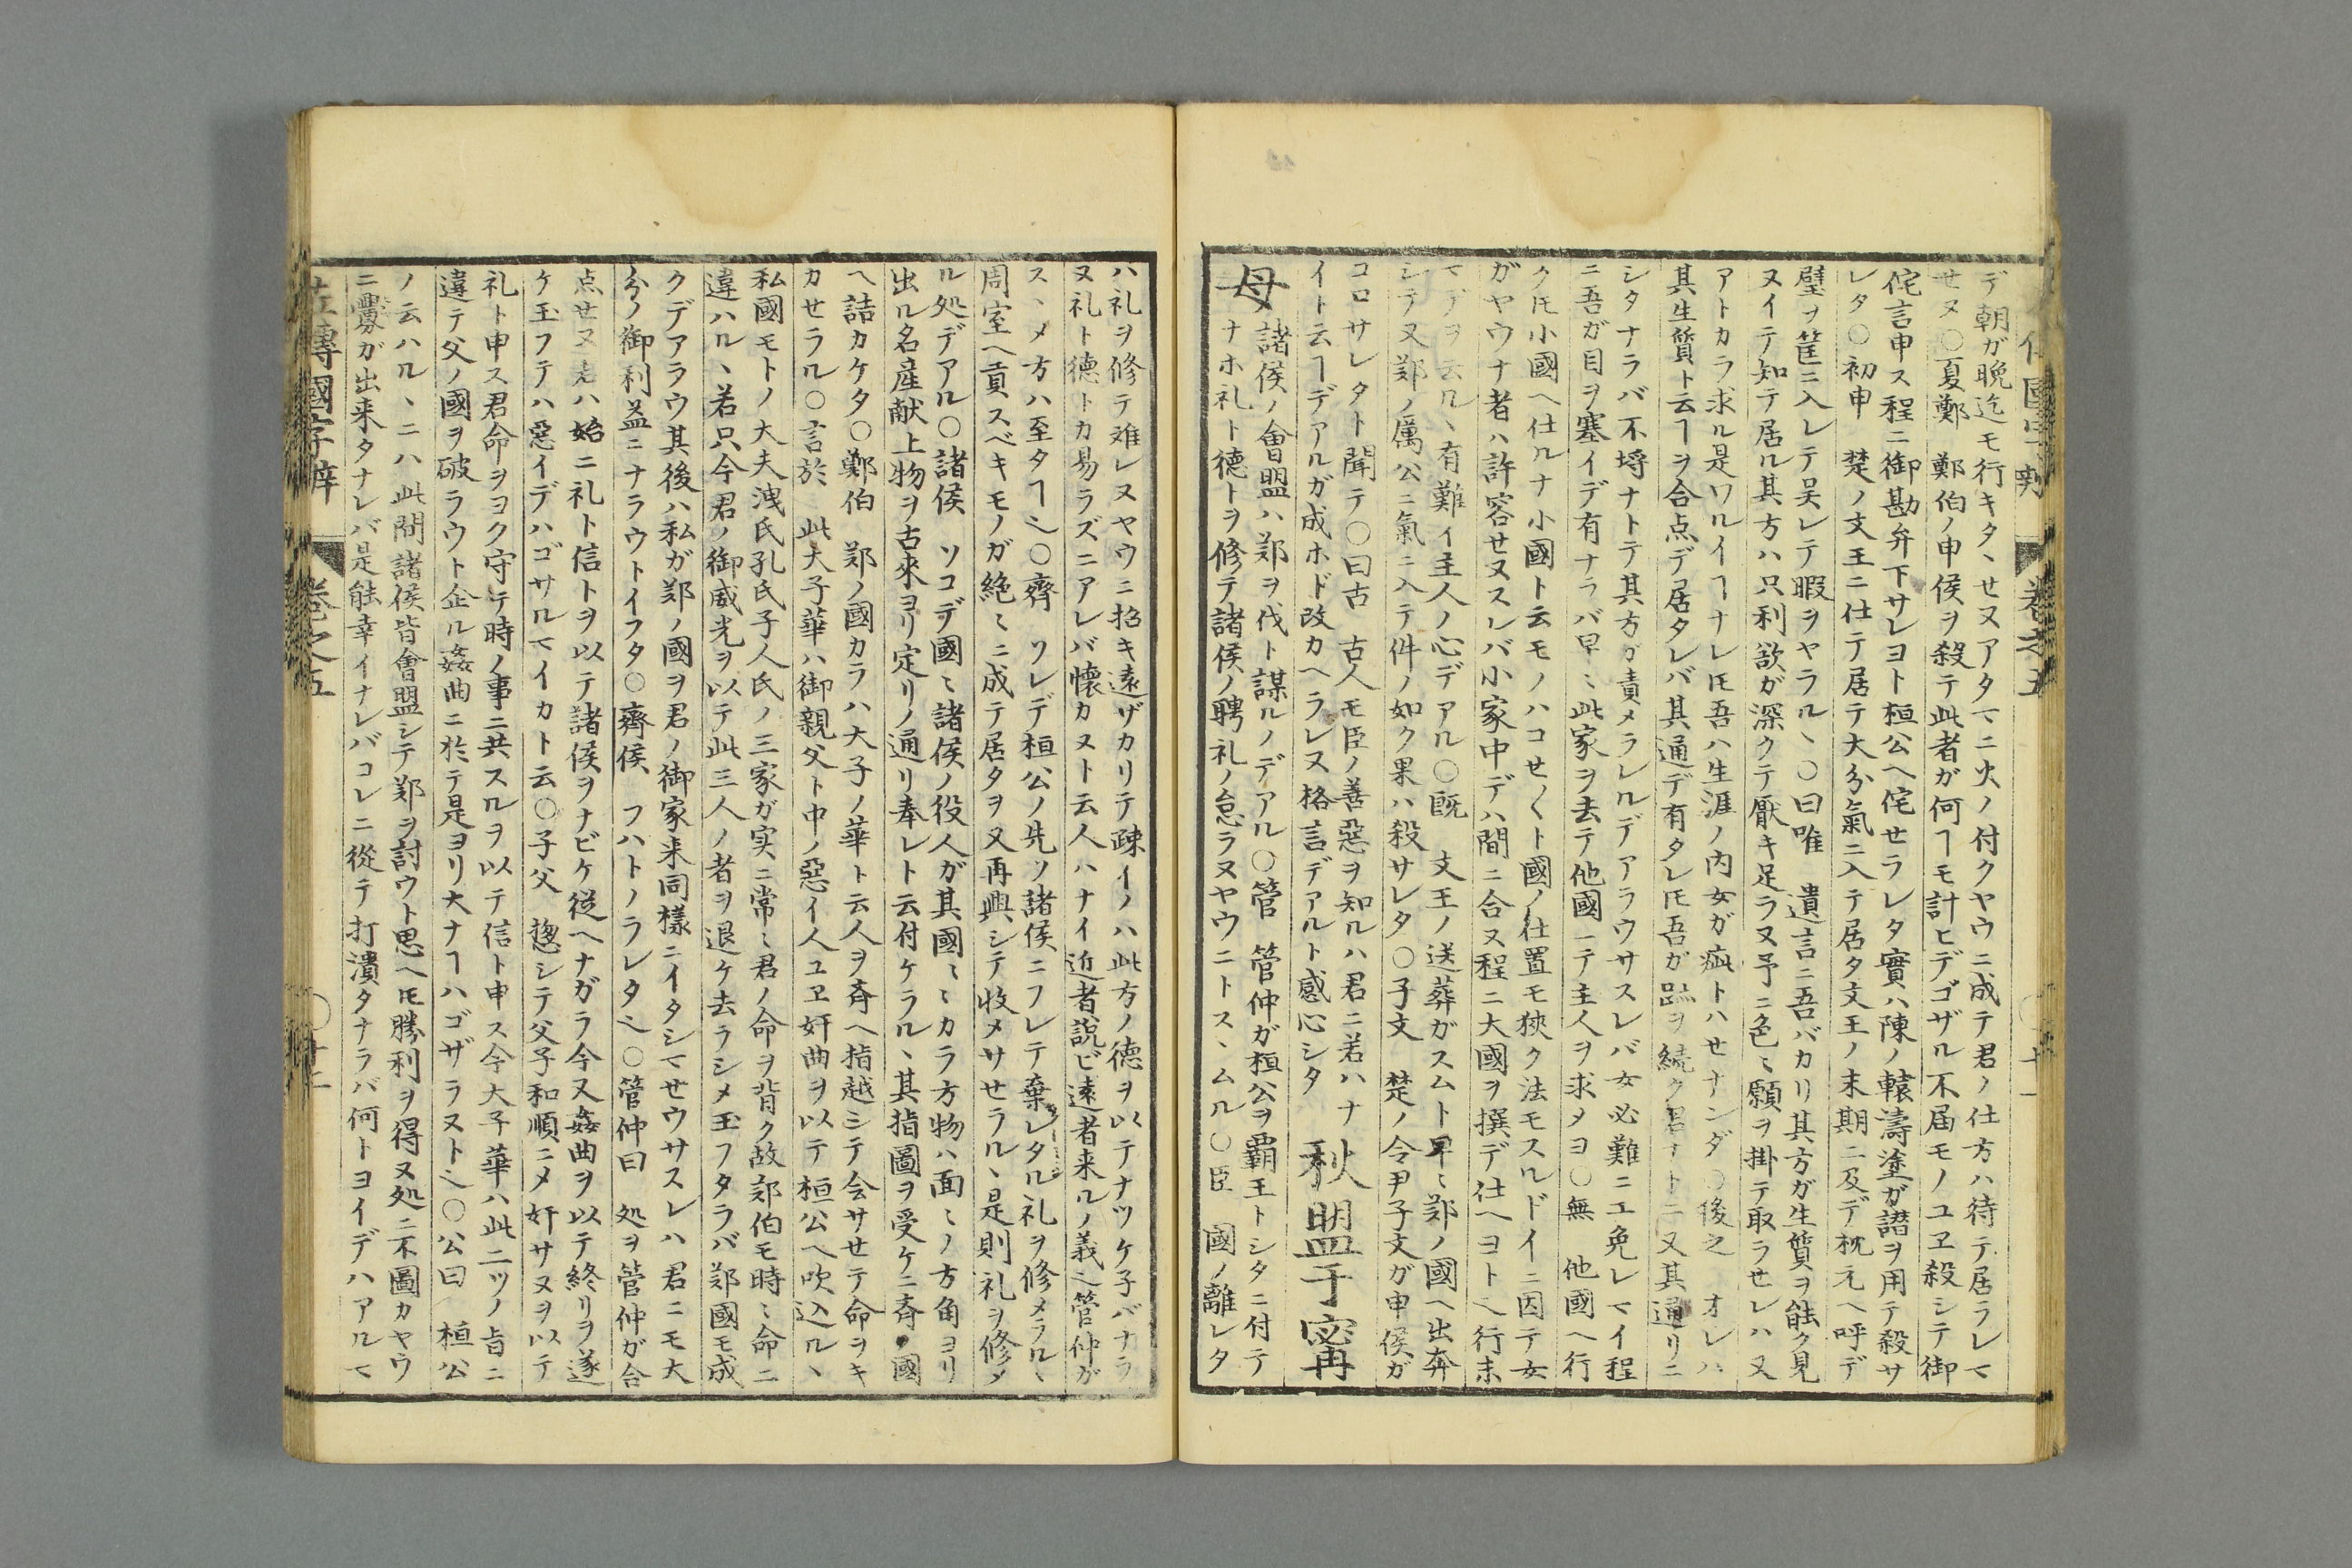 デ朝ガ晩迄モ行キタヽセヌアタマニ火ノ付クヤウニ成テ君ノ仕方ハ待テ居ラレマ
セヌ〇夏鄭　鄭伯ノ申侯ヲ殺テ此者ガ何ヿモ計ヒデゴザル不届モノユヱ殺シテ御
侘言申ス程ニ御勘弁下サレヨト桓公ヘ侘セラレタ實ハ陳ノ轅濤塗ガ譛ヲ用テ殺サ
レタ〇初申　楚ノ文王ニ仕テ居テ大分氣ニ入テ居タ文王ノ末期ニ及デ枕元ヘ呼デ
璧ヲ筐ニ入レテ呉レテ暇ヲヤラルヽ〇曰唯　遺言ニ吾バカリ其方ガ生質ヲ能ク見
ヌイテ知テ居ル其方ハ只利欲ガ深クテ厭キ足ラヌ予ニ色〻願ヲ掛テ取ラセレハ又
アトカラ求ル是ワルイヿナレ𪜈吾ハ生涯ノ内女ガ疵トハセナンダ〇後之　オレハ
其生質ト云ヿヲ合点デ居タレバ其通デ有タレ𪜈吾ガ跡ヲ續ク君ナトニ又其通リニ
シタナラバ不埒ナトテ其方ガ責メラレルデアラウサスレバ女必難ニエ免レマイ程
ニ吾ガ目ヲ塞イデ有ナラバ早〻此家ヲ去テ他國ニテ主人ヲ求メヨ〇無　他國ヘ行
ク𪜈小國ヘ仕ルナ小國ト云モノハコセ〱ト國ノ仕置モ狹ク法モスルドイニ因テ女
ガヤウナ者ハ許容セヌスレバ小家中デハ間ニ合ヌ程ニ大國ヲ撰デ仕ヘヨト也行末
マデヲ云ルヽ有難イ主人ノ心デアル〇既　文王ノ送葬ガスムト早〻鄭ノ國ヘ出奔
シテ又鄭ノ厲公ニ氣ニ入テ件ノ如ク果ハ殺サレタ〇子文　楚ノ令尹子文ガ申侯ガ
コロサレタト聞テ〇曰古　古人モ臣ノ善惡ヲ知ルハ君ニ若ハナ
イト云ヿデアルガ成ホド改カヘラレヌ格言デアルト感心シタ　秋盟于寗
母　諸侯ノ會盟ハ鄭ヲ伐ト謀ルノデアル〇管　管仲ガ桓公ヲ覇王トシタニ付テ
ナホ礼ト德トヲ修テ諸侯ノ聘礼ノ怠ラヌヤウニトスヽムル〇臣　國ノ離レタ
ハ礼ヲ修テ难レヌヤウニ招キ遠ザカリテ疎イノハ此方ノ德ヲ以テナツケ子バナラ
ヌ礼ト德トカ易ラズニアレバ懷カヌト云人ハナイ近者説ビ遠者来ルノ義也管仲ガ
スヽメ方ハ至タヿ也〇齊　ソレデ桓公ノ先ツ諸侯ニフレテ棄レタル礼ヲ修メラルヽ
周室ヘ貢スベキモノガ絶〻ニ成テ居タヲ又再興シテ收メサセラルヽ是則礼ヲ修メ
ル処デアル〇諸侯　ソコデ國〻諸侯ノ役人ガ其國〻カラ方物ハ面〻ノ方角ヨリ
出ル名産献上物ヲ古來ヨリ定リノ通リ奉レト云付ケラルヽ其指圖ヲ受ケニ斉ノ國
ヘ詰カケタ〇鄭伯　鄭ノ國カラハ大子ノ華ト云人ヲ斉ヘ指越シテ会サセテ命ヲキ
カセラル〇言於　此大子華ハ御親父ト中ノ惡イ人ユヱ奸曲ヲ以テ桓公ヘ吹込ルヽ
私國モトノ大夫洩氏孔氏子人氏ノ三家ガ実ニ常〻君ノ命ヲ背ク故鄭伯モ時〻命ニ
違ハルヽ若只今君ノ御威光ヲ以テ此三人ノ者ヲ退ケ去ラシメ玉フタラバ鄭國モ成
クデアラウ其後ハ私ガ鄭ノ國ヲ君ノ御家来同樣ニイタシマセウサスレハ君ニモ大
分ノ御利益ニナラウトイフタ〇齊侯　フハトノラレタ也〇管仲曰　処ヲ管仲ガ合
点セヌ先ハ始ニ礼ト信トヲ以テ諸侯ヲナビケ從ヘナガラ今又姦曲ヲ以テ終リヲ遂
ケ玉フテハ惡イデハゴサルマイカト云〇子父　惣シテ父子和順ニメ奸サヌヲ以テ
礼ト申ス君命ヲヨク守テ時ノ事ニ共スルヲ以テ信ト申ス今大子華ハ此二ツノ旨ニ
違テ父ノ國ヲ破ラウト企ル姦曲ニ於テ是ヨリ大ナヿハゴザラヌト也〇公曰　桓公
ノ云ハルヽニハ此間諸侯皆會盟シテ鄭ヲ討ウト思ヘ𪜈勝利ヲ得ヌ処ニ不圖カヤウ
ニ釁ガ出来タナレバ是能幸イナレバコレニ從テ打潰タナラバ何トヨイデハアルマ
左傳國字辨　卷之五　〇十二